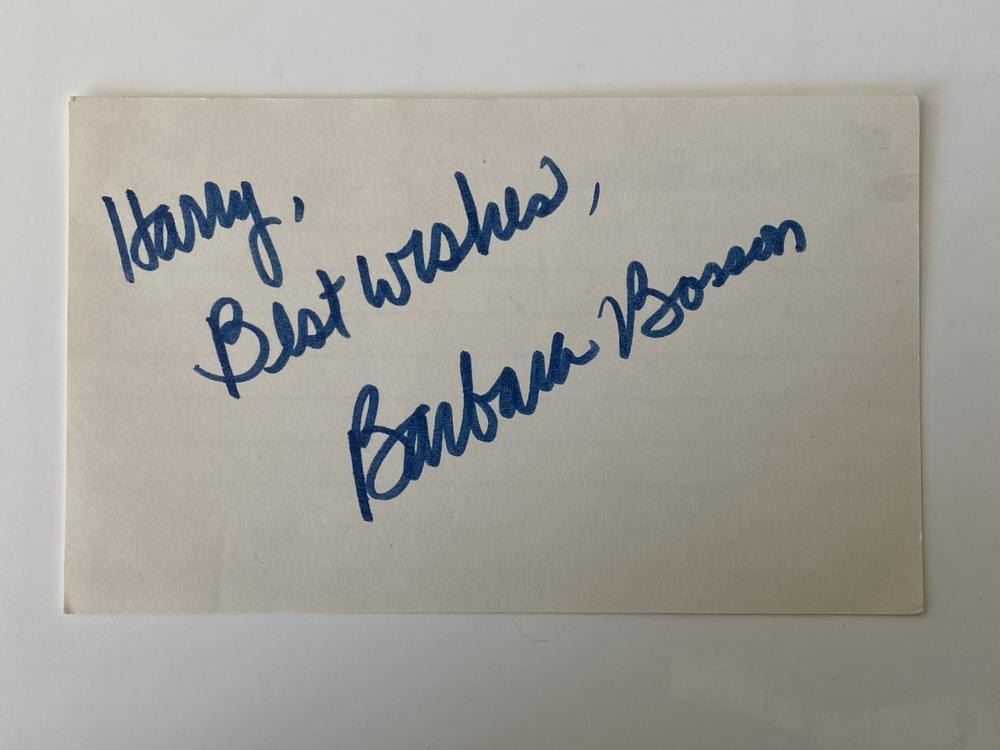 Harry,
Best Wishes,
Barbara Bosson